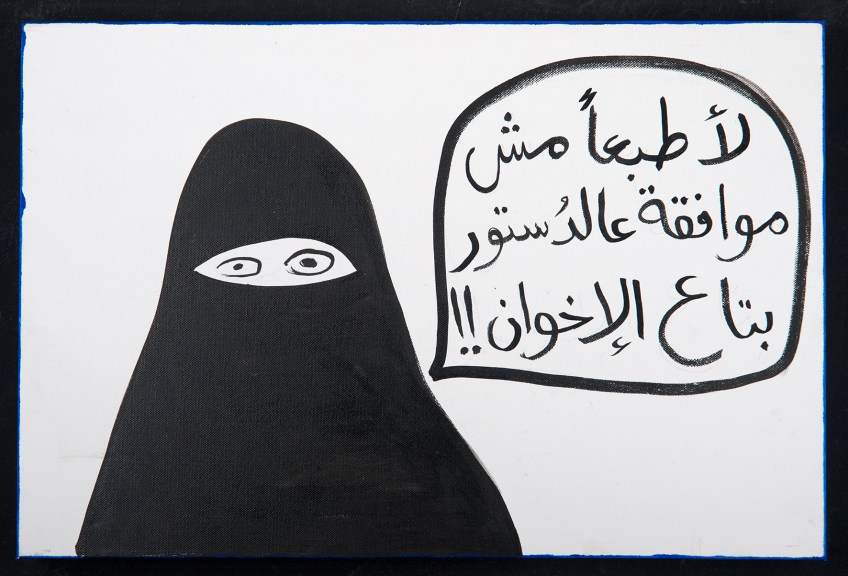 لأ طبعاً مش
موافقة عالدُستور
بتاع الإخوان !!